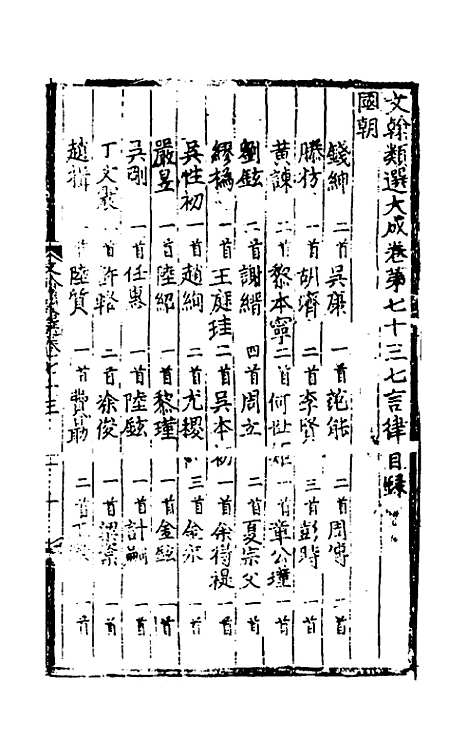 文翰類選大成卷第七十三七言律目録
國朝
錢紳 二首 吳康 一首 范能 二首 周傅 二首
滕彷 一首 胡濟 二首 李賢 三首 彭時 一首
黄諫 二首 黎本寧 二首 何世 一首 章公瑾 一首
劉鉉 一首 謝縉 四首 周立 二首 夏宗文 一首
繆樆 一首 王庭珪 二首 吳本初 一首 余得禔 一首
吳性初 一首 趙絢 二首 尤稷 三首 金 一首
嚴昱 一首 陸紹 一首 黎瑾 一首 金鉉 一首
吳剛 一首 任惠 一首 陸鉉 一首 計 一首
丁文 一首 許輅 二首 徐俊 一首 一首
趙 一首 陸質 一首 費 二首 一首